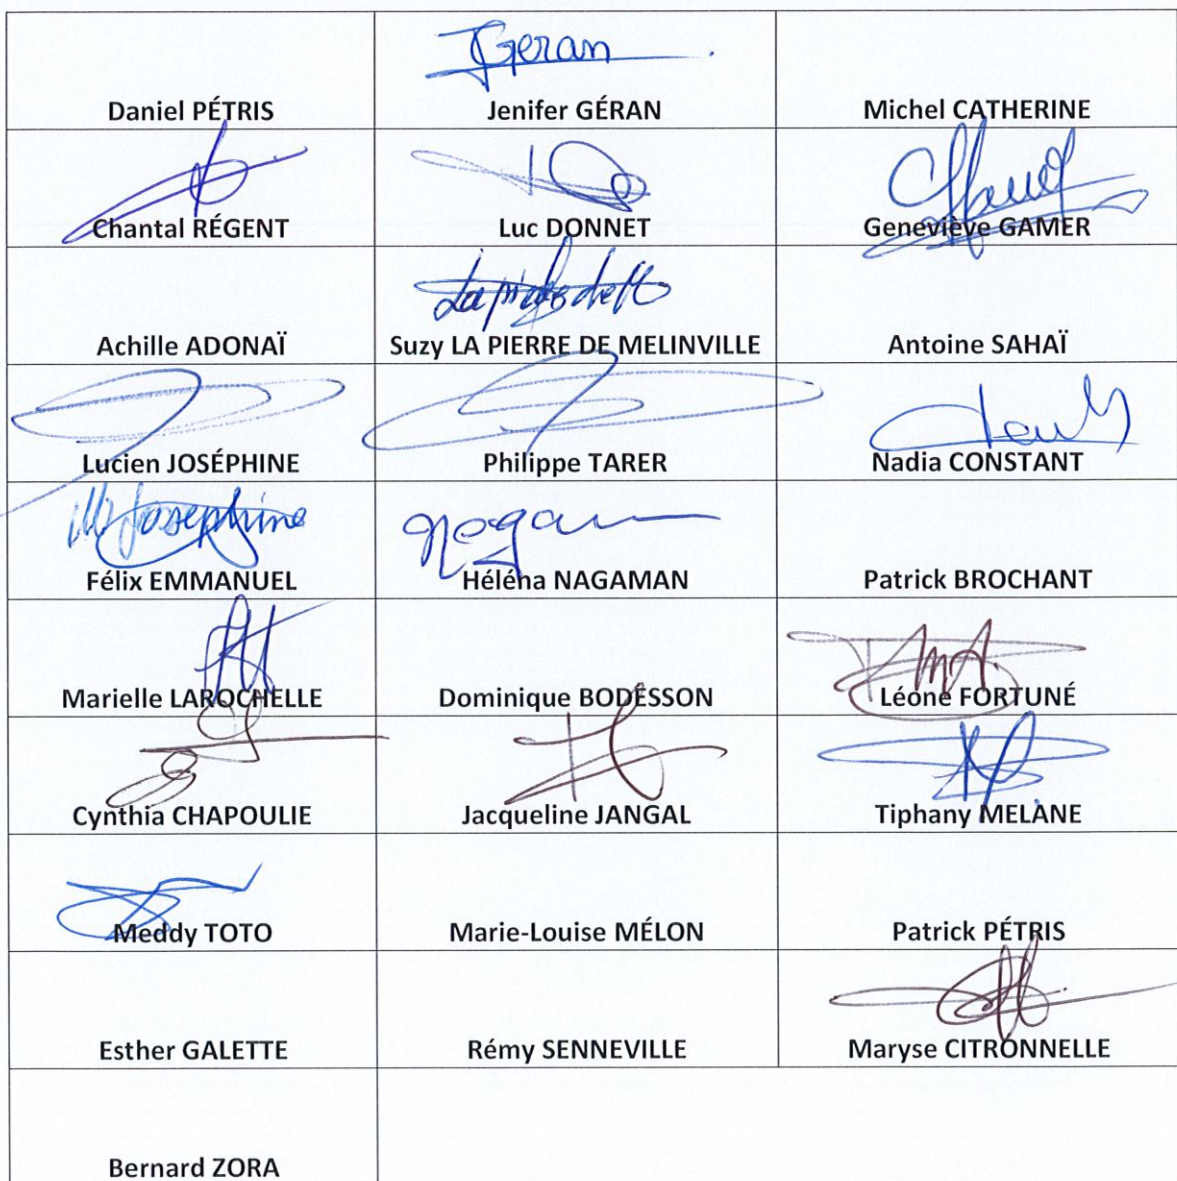 JGeran
Daniel PÉTRIS
Jenifer GÉRAN
Michel CATHERINE
Chantal RÉGENT
Luc DONNET
Geneviève GAMER
Achille ADONAÏ
Suzy LA PIERRE DE MELINVILLE
Antoine SAHAÏ
Lucien JOSÉPHINE
Philippe TARER
Nadia CONSTANT
Josephine
Félix EMMANUEL
Héléna NAGAMAN
Patrick BROCHANT
Marielle LAROCHELLE
Dominique BODESSON
Léone FORTUNÉ
Cynthia CHAPOULIE
Jacqueline JANGAL
Tiphany MELANE
Meddy TOTO
Marie-Louise MÉLON
Patrick PÉTRIS
Esther GALETTE
Rémy SENNEVILLE
Maryse CITRONNELLE
Bernard ZORA